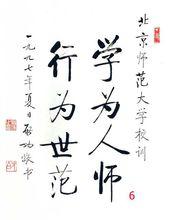 北京师范大学校训
学为人师
行为世范
一九九七年夏日 启功敬书
6